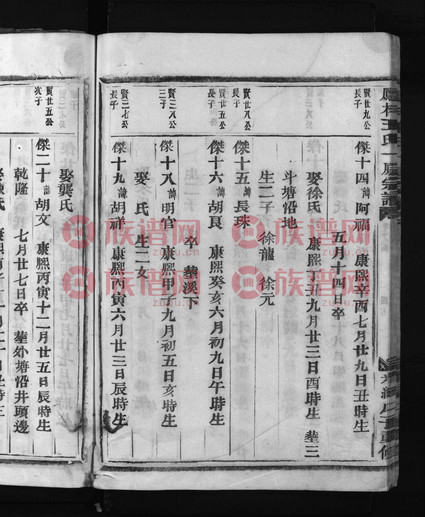 賢廿九公
長子
傑十四諱阿福 康熙辛酉七月廿九日丑時生
五月十四日卒
娶徐氏 康熙丁丑九月廿三日酉時生 葬三
斗塘沿地
生二子 徐龍 徐元
賢廿五公
長子
傑十五諱長珠
傑十六諱胡良 康熙癸亥六月初九日午時生
卒 葬溪下
賢二八公
三子
傑十八諱明官 康熙甲子九月初五日亥時生
娶 氏 生二女
賢二七公
長子
傑十九諱胡祥 康熙丙寅六月廿三日辰時生
娶龔氏
賢廿五公
次子
傑二十諱胡文 康熙丙寅十二月廿五日辰時生
乾隆 七月廿七日卒 葬外塘沿井頭邊
族谱网